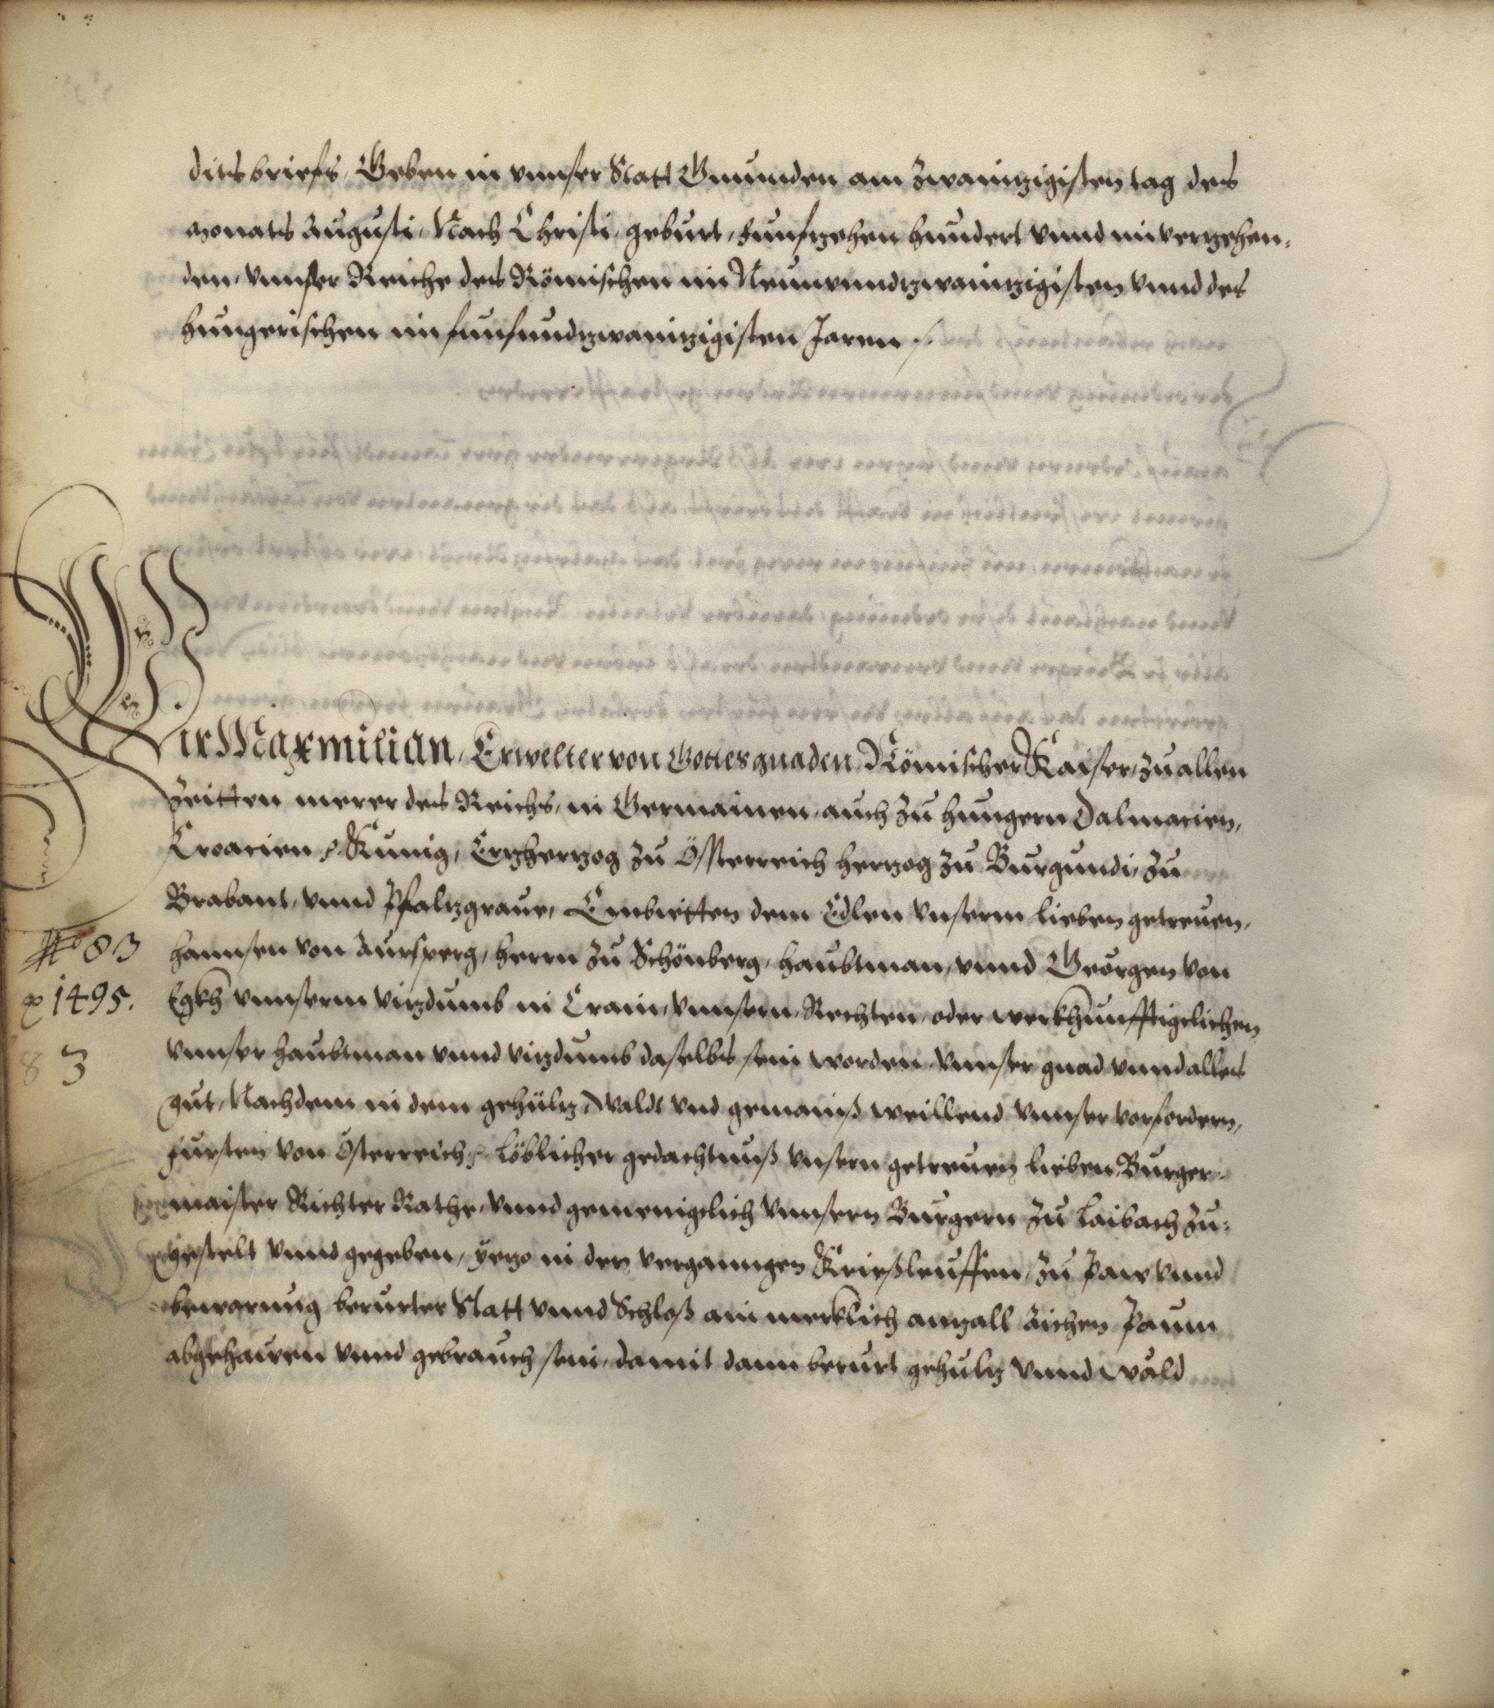 dits briefs, Geben in vnnser Statt Gmunden am zwaintzigisten tag des
monats Augusti, Nach Christi geburt, funfzehen hundert vnnd im vierzehen-
den, vnnser Reiche des Römischen im Neunvnndzwaintzigisten vnnd des
hungerischen im funfundzwaintzigisten Jaren
Wir Maxmilian, Erwelter von Gottes gnaden, Römischer Kaiser, zu allen
Zeitten merer des Reichs, in Germainen, auch zu hungern Dalmacien,
Croacien Kunig, Ertzhertzog zu Össterreich hertzog zu Burgundi, zu
Brabant, vnnd Pfaltzgraue, Embietten dem Edlen vnserm lieben getreuen,
hannsen von Aursperg, herrn zu Schönberg, haubtman, vnnd Georgen von
No 83
1495.
Egkh vnnserm vitzdumb in Crain, vnnsern Rechten, oder wer khunfftigelichen
83
vnnser haubtman vnnd vitzdumb daselbs sein worden, vnnser gnad vnnd alles
gut, Nachdem in dem gehültz, Waldt vnd gemainß weillend vnnser vorfordern,
fursten von Österreich löblicher gedachtnuß vnsern getreuen lieben Burger-
maister Richter Rathe, vnnd gemenigelich vnnsern Burgern zu Laibach zu-
gestelt vnnd gegeben, yetzo in den verganngen Krießleuffen, zu paw vnnd
bewarung berurter Statt vnnd Schloß ain mercklich antzall Aichen Paum
abgehauen vnnd gebrauch sein, damit dann berurt gehultz vnnd wäld